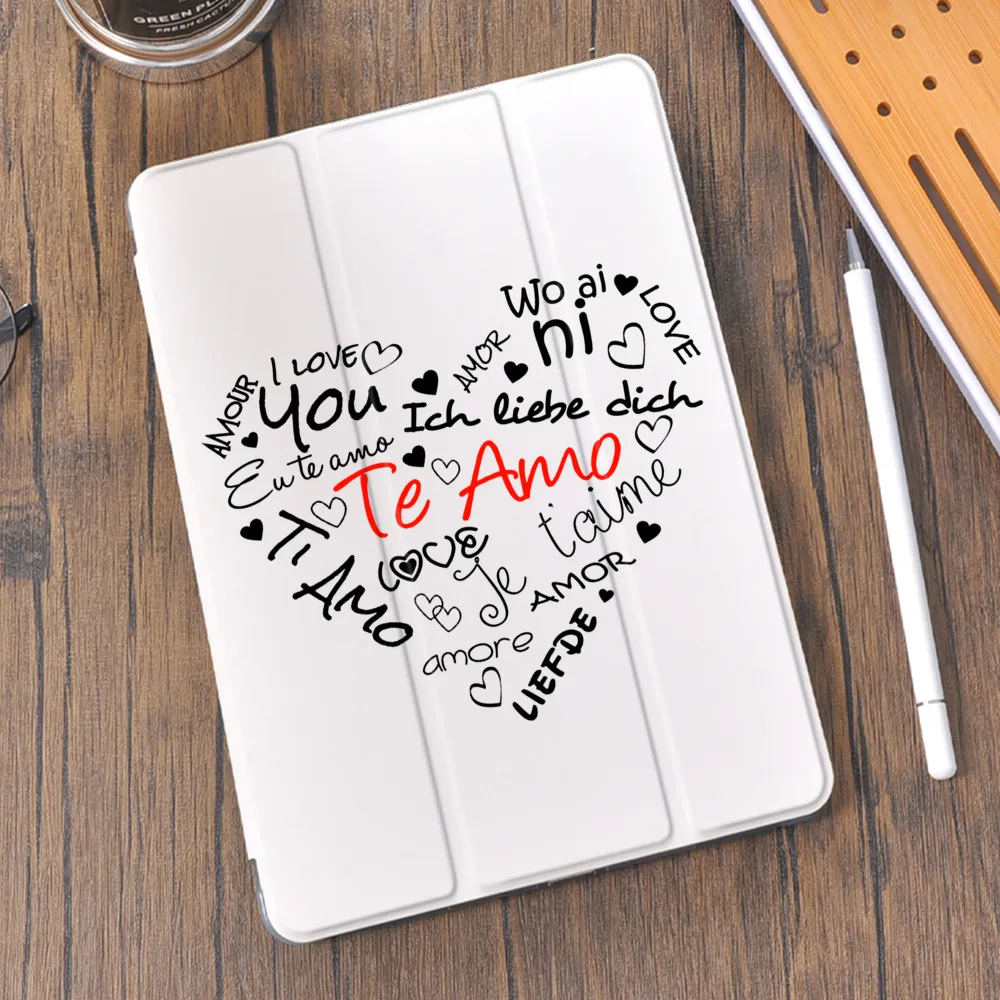 GREEN PL
FRESH CACTU
Wo ai
ni
LOVE
AMOR
I LOVE
you
AMOUR
Ich liebe dich
Eu te amo
Te Amo
t'aime
Ti Amo
LOVE
Je
AMOR
amore
LIEFDE